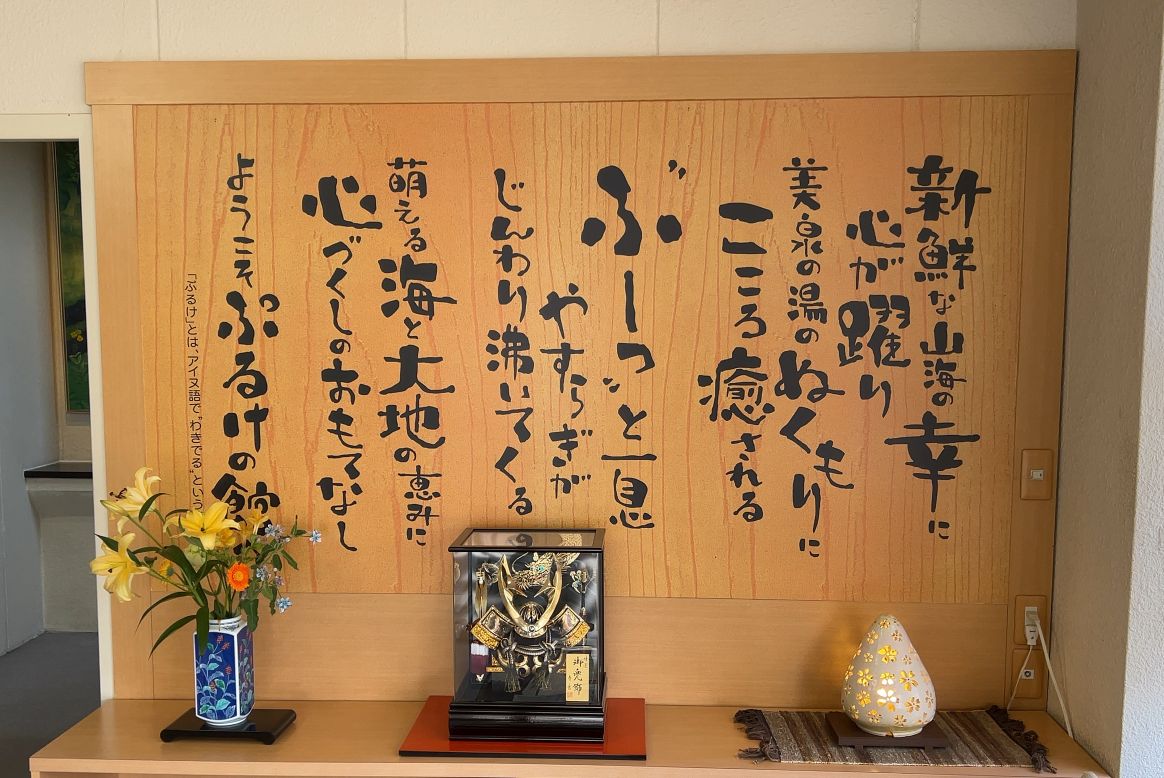 新鮮な山海の幸に
心が躍り
美泉の湯のぬくもりに
こころ癒される
“ふーっ”と一息
やすらぎが
じんわり沸いてくるの
萌える海と大地の恵みに
心づくしのおもてなし
ようこそぷるけの館
「ぷるけ」とは、アイヌ語で“わきでる”という
御兜飾